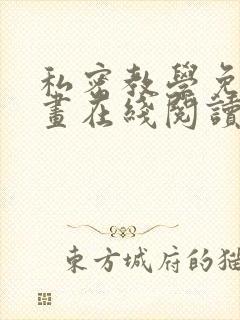 私密教學免
畫在綫閱讀
東方城府的猫